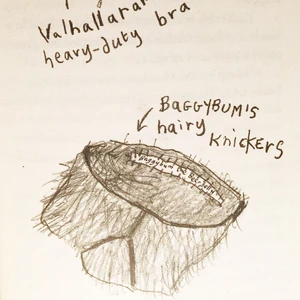 Valhallaram
heavy-duty bra
BAGGYBUM'S
hairy
knickers
Baggybum the